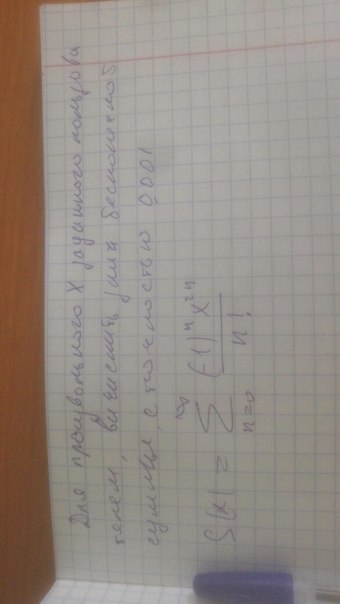 Для произвольного X заданного пользова
телем, вычислить бесконечной
суммы, с точностью 0,001
S(x) = \sum_{n=0}^{∞} \frac{(-1)^n x^{2n}}{n!}